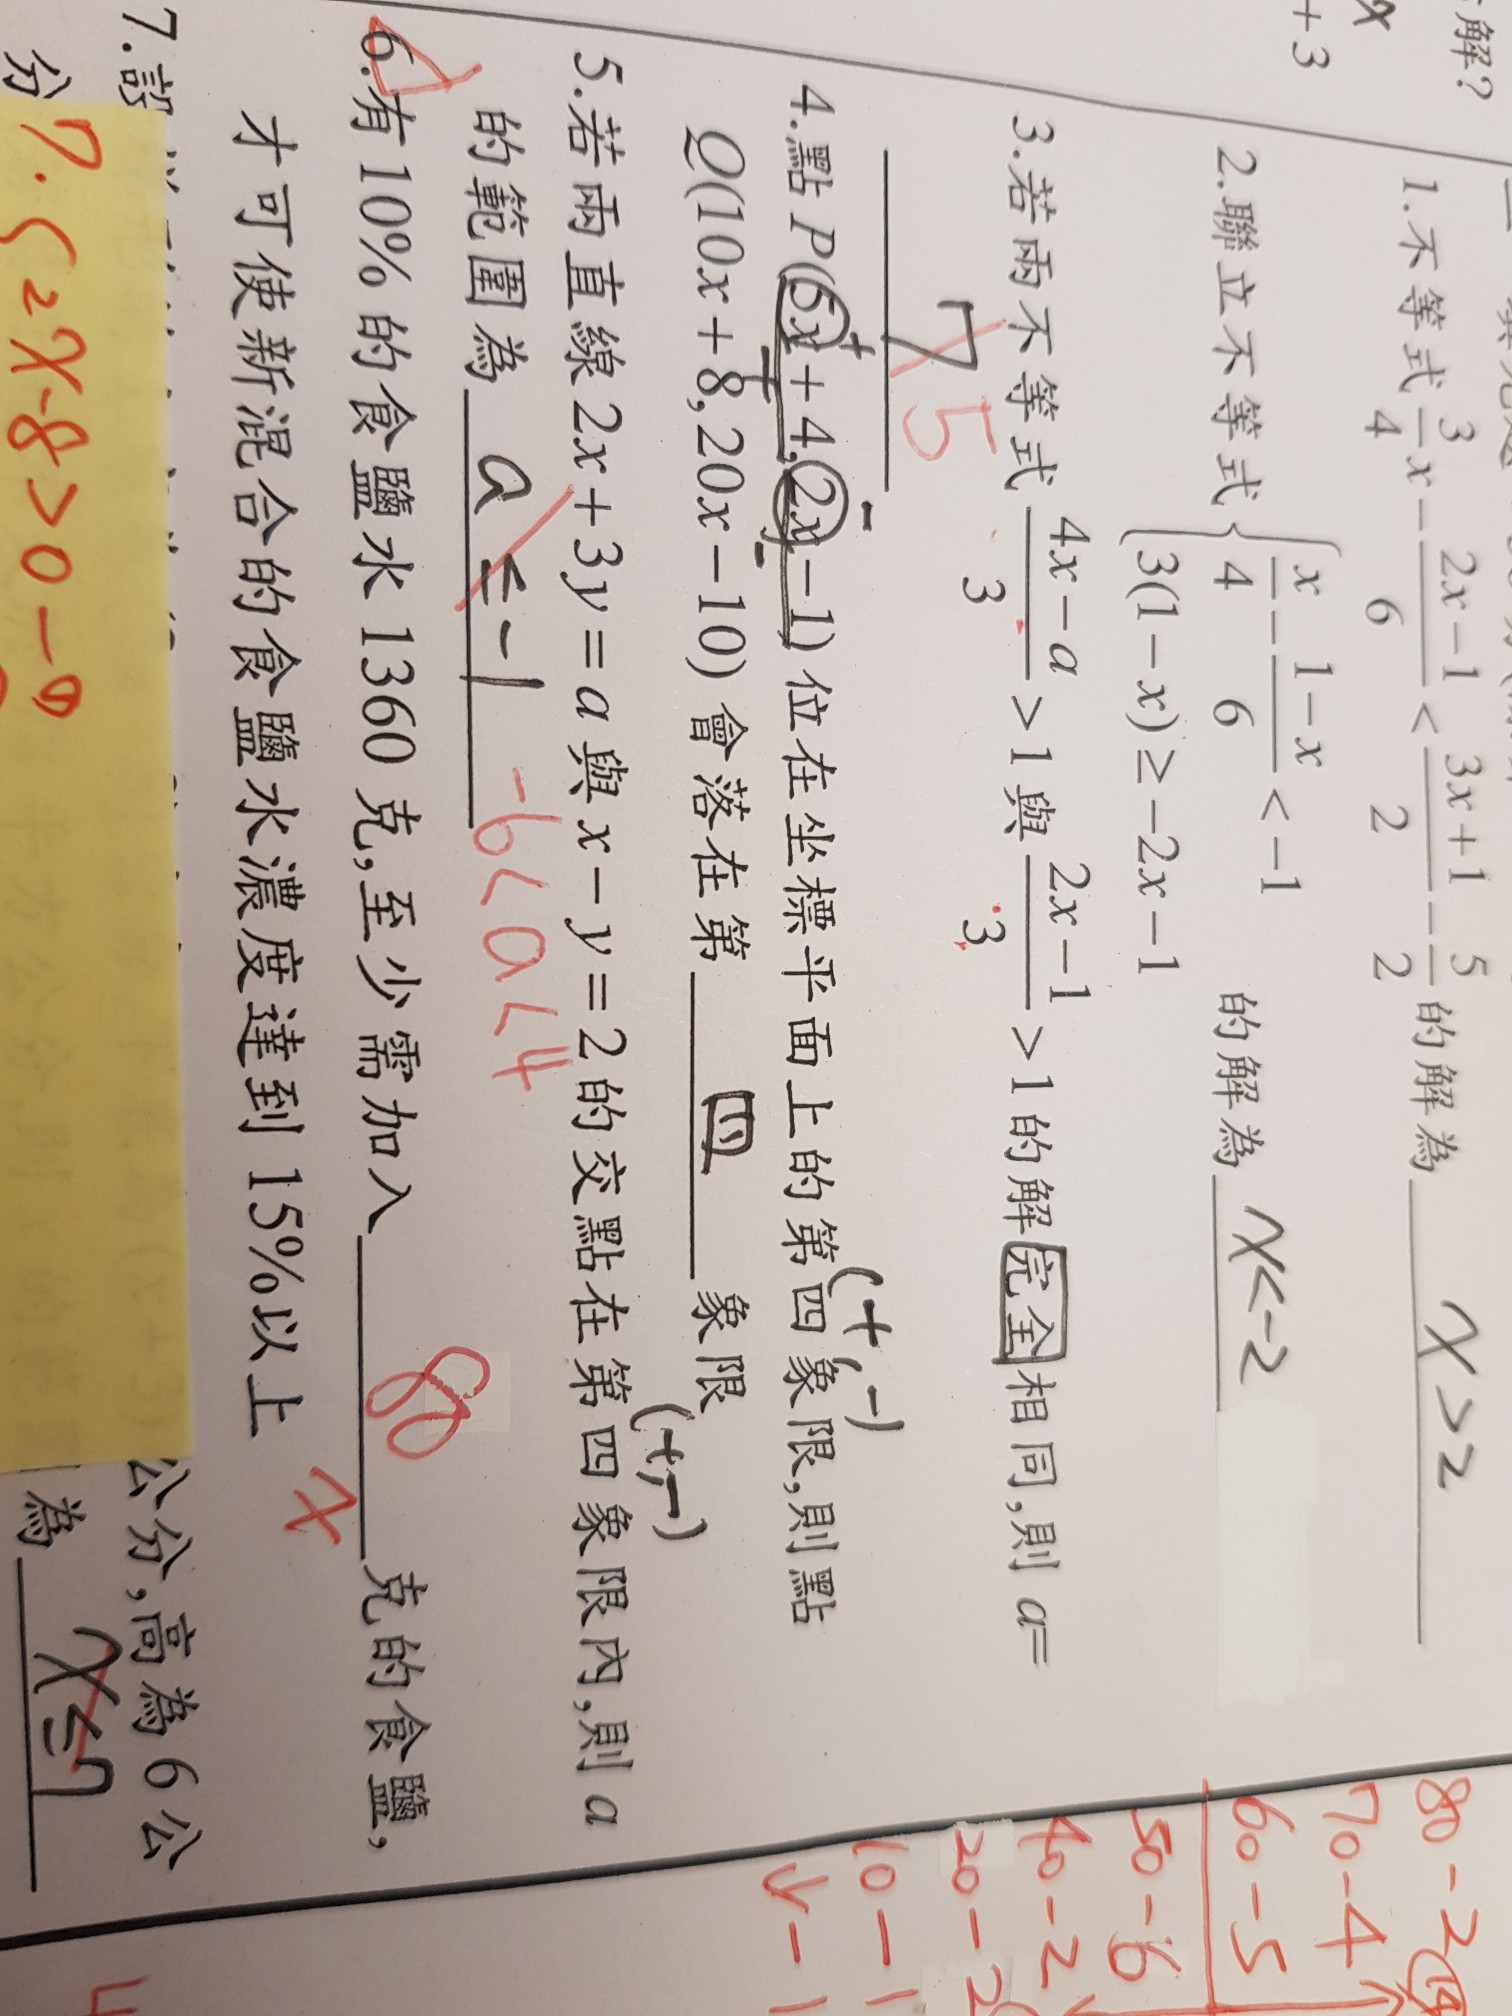 解?
+3
1.不等式 3/4 x - (2x-1)/6 < (3x+1)/2 - 5/2 的解為 x>2
2.聯立不等式 { x/4 - (1-x)/6 < -1
3(1-x) ≥ -2x-1 的解為 x<-2
3.若兩不等式 (4x-a)/3 >1與 (2x-1)/3 >1的解完全相同,則 a=
7 5
(+,-)
4.點 P(6x+4,2x-1)位在坐標平面上的第四象限,則點
+ -
Q(10x+8,20x-10)會落在第 四 象限
(+,-)
5.若兩直線2x+3y=a與x-y=2的交點在第四象限內,則a
的範圍為 a≤-1 -6<a<4
6.有10%的食鹽水1360克,至少需加入 80 克的食鹽,
才可使新混合的食鹽水濃度達到15%以上
7.設 公分,高為6公
分 為 x≤7
7. { 2x-8>0
80-2
70-4
60-5
50-6
40-2
20-2
10-1